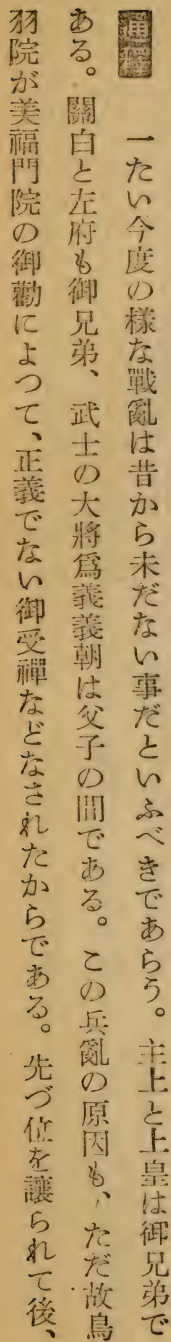 通釋 一たい今度の樣な戰亂は昔から未だない事だといふべきであらう。主上と上皇は御兄弟で
ある。關白と左府も御兄弟、武士の大將爲義義朝は父子の間である。この兵亂の原因も、ただ故鳥
羽院が美福門院の御勸によつて、正義でない御受禪などなされたからである。先づ位を讓られて後、